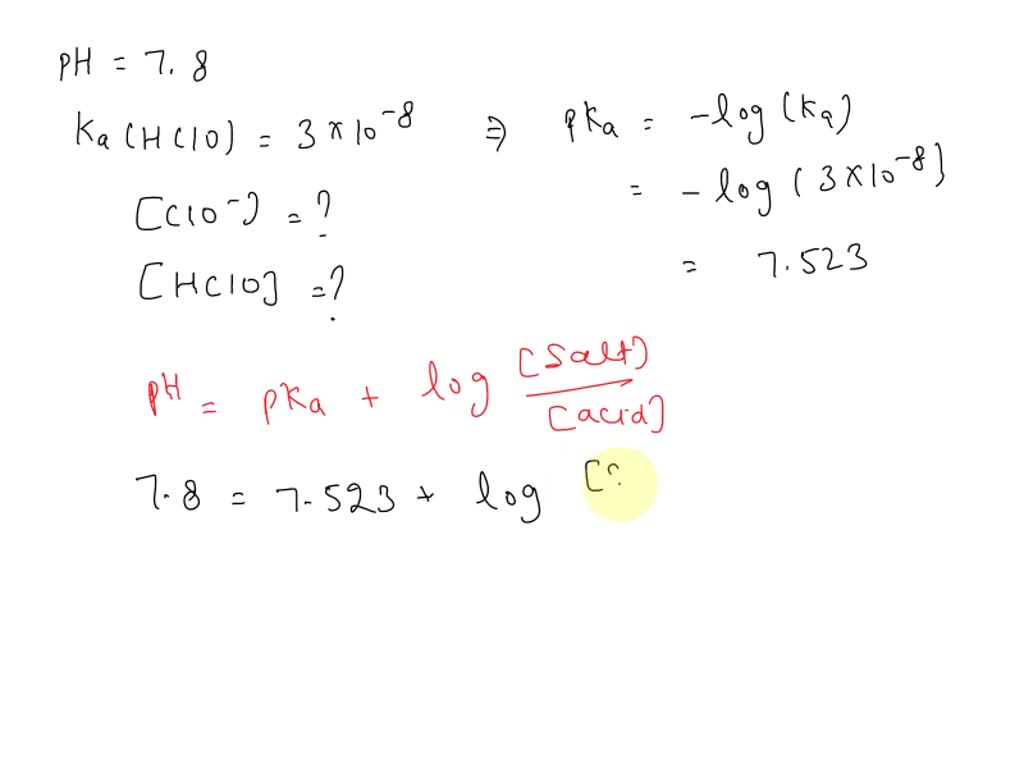 pH = 7.8
Ka (HClO) = 3 × 10⁻⁸ ⇒ pKa = -log (Ka)
= - log (3×10⁻⁸)
[ClO⁻] = ?
= 7.523
[HClO] = ?
pH = pKa + log [Salt] / [acid]
7.8 = 7.523 + log [